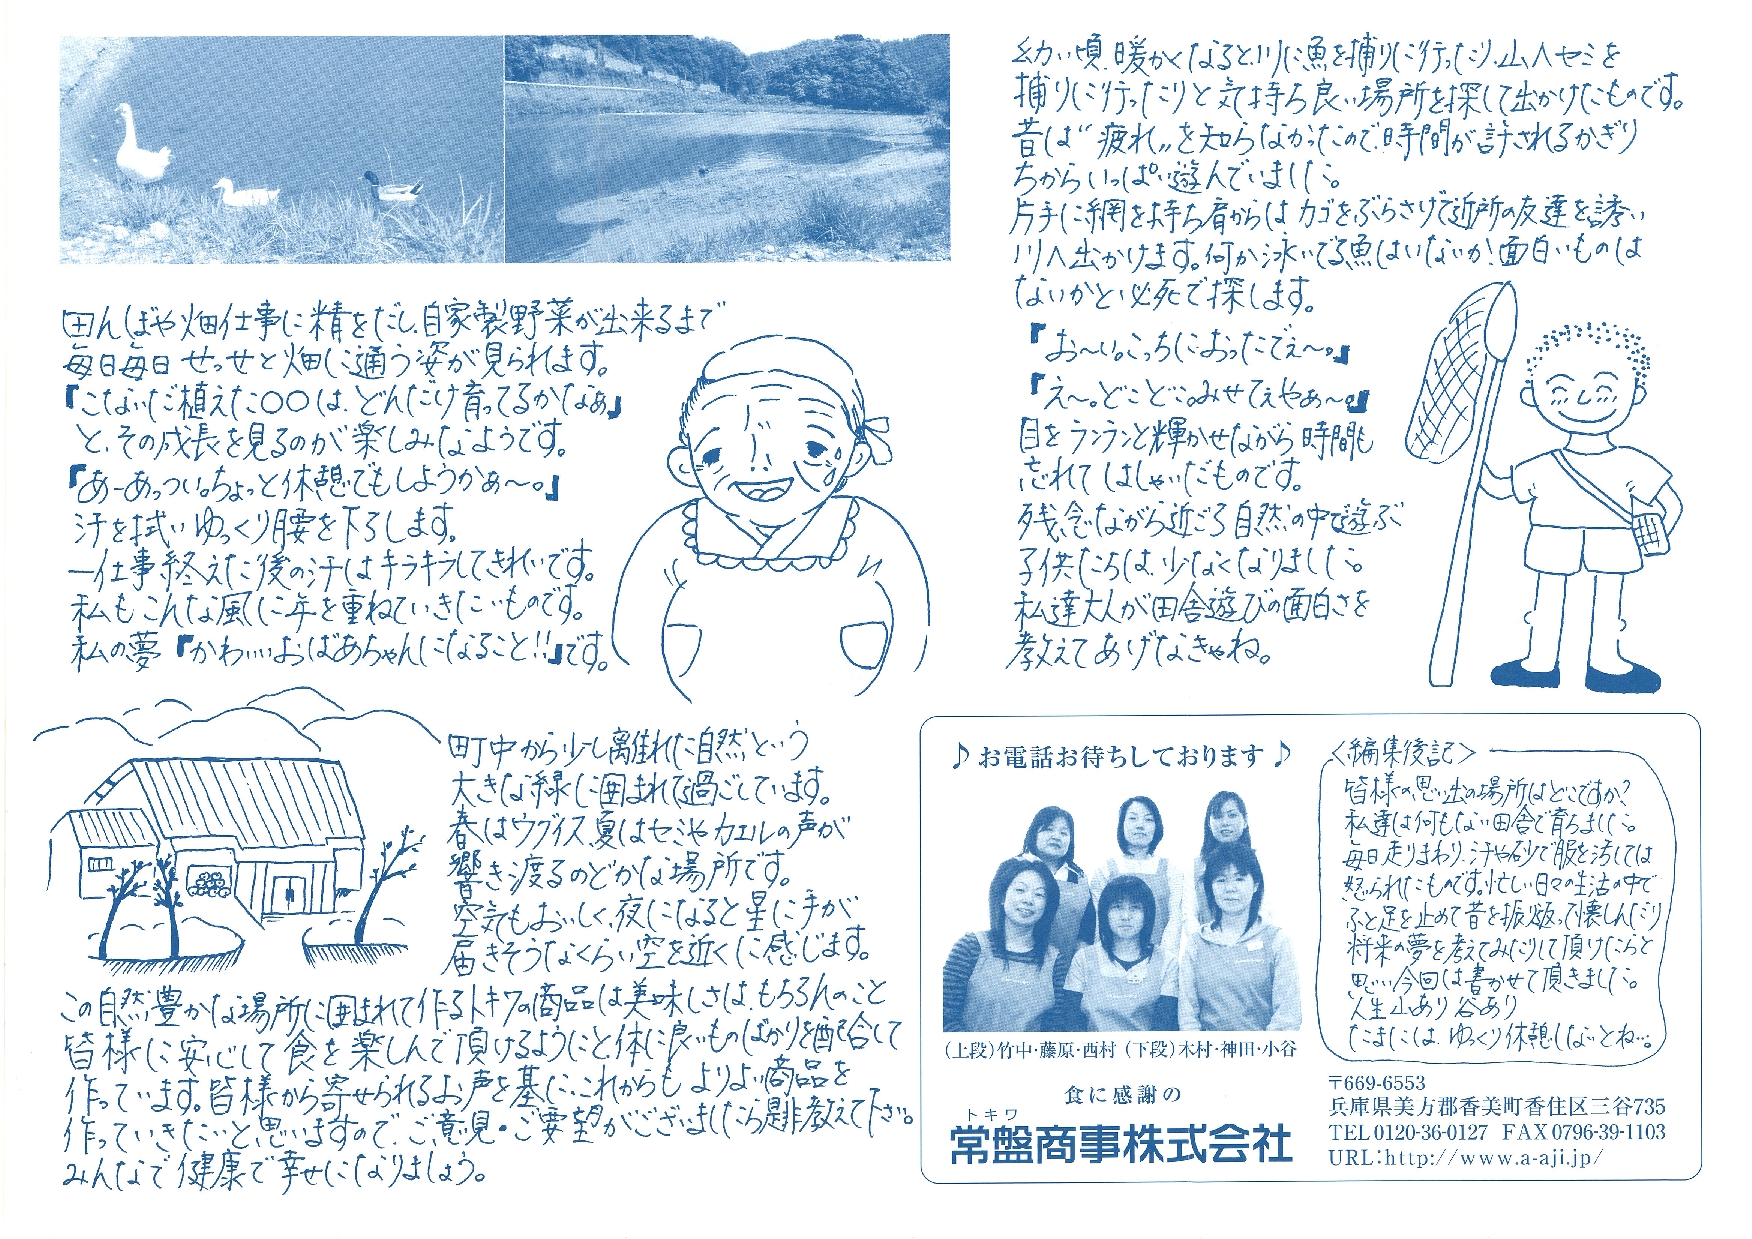 田んぼや畑仕事に精をだし、自家製野菜が出来るまで
毎日毎日 せっせと畑に通う姿が見られます。
『こないだ植えた○○は、どんだけ育ってるかなぁ』
と、その成長を見るのが楽しみなようです。
『あーあっつい。ちょっと休憩でもしようかぁ〜。』
汗を拭い ゆっくり腰を下ろします。
一仕事終えた後の汗はキラキラしてきれいです。
私も こんな風に年を重ねていきたいものです。
私の夢『かわいいおばあちゃんになること!!』です。
町中から少し離れた自然という
大きな緑に囲まれて過ごしています。
春はウグイス、夏はセミやカエルの声が
響き渡るのどかな場所です。
空気もおいしく、夜になると星に手が
届きそうなくらい空を近くに感じます。
この自然豊かな場所に囲まれて作るトキワの商品は美味しさは、もちろんのこと
皆様に安心して食を楽しんで頂けるようにと、体に良いものばかりを配合して
作っています。皆様から寄せられるお声を基に、これからも よりよい商品を
作っていきたいと思いますので、ご意見・ご要望がございましたら是非教えて下さい。
みんなで健康で幸せになりましょう。
幼い頃、暖かくなると、川に魚を捕りに行ったり、山へセミを
捕りに行ったりと気持ち良い場所を探して出かけたものです。
昔は“疲れ„を知らなかったので、時間が許されるかぎり
ちからいっぱい遊んでいました。
片手に網を持ち肩からは カゴをぶらさげて近所の友達を誘い
川へ出かけます。何か泳いでる魚はいないか!面白いものは
ないかと必死で探します。
『お〜い。こっちにおったでぇ〜。』
『え〜。どこどこ。みせてぇやぁ〜。』
目をランランと輝かせながら 時間も
忘れて はしゃいだものです。
残念ながら近ごろ 自然の中で遊ぶ
子供たちは、少なくなりました。
私達大人が田舎遊びの面白さを
教えてあげなきゃね。
♪お電話お待ちしております♪
(上段)竹中・藤原・西村 (下段)木村・神田・小谷
食に感謝の
トキワ
常盤商事株式会社
<編集後記>
皆様の、思い出の場所はどこですか?
私達は何もない田舎で育ちました。
毎日走りまわり、汗や砂で服を汚しては
怒られたものです。忙しい日々の生活の中で
ふと足を止めて昔を振り返って懐しんだり
将来の夢を考えてみたりして頂けたらと
思い、今回は書かせて頂きました。
人生山あり谷あり
たまには、ゆっくり休憩しないとね…。
〒669-6553
兵庫県美方郡香美町香住区三谷735
TEL 0120-36-0127 FAX 0796-39-1103
URL:http://www.a-aji.jp/